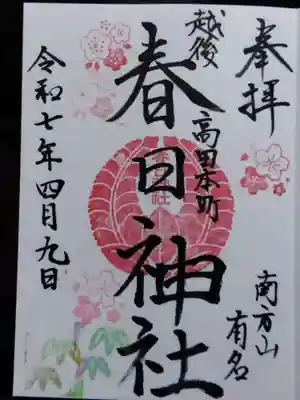 奉拝
南方山
有名
越後
高田本町
春日神社
令和七年四月九日